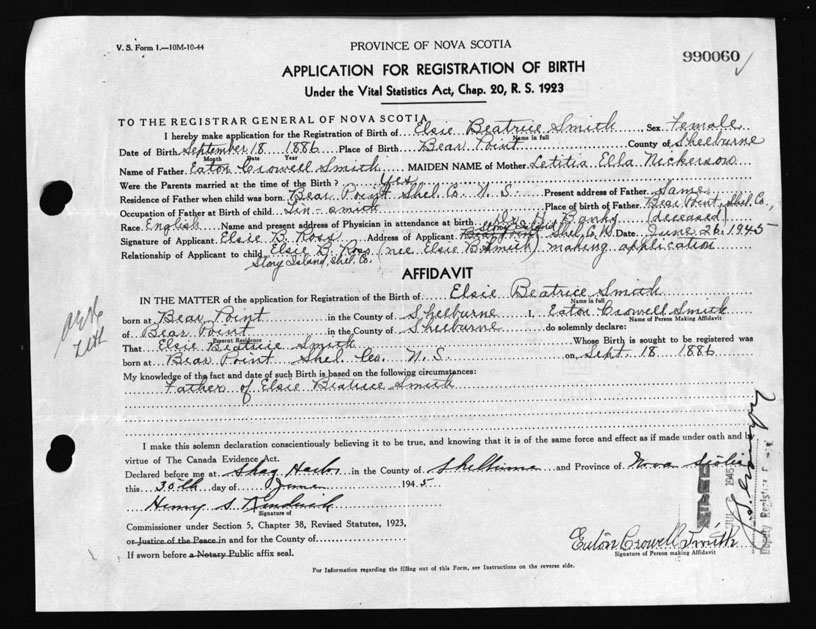 V. S. Form 1.—10M-10-44
PROVINCE OF NOVA SCOTIA
990060
APPLICATION FOR REGISTRATION OF BIRTH
Under the Vital Statistics Act, Chap. 20, R. S. 1923
TO THE REGISTRAR GENERAL OF NOVA SCOTIA
I hereby make application for the Registration of Birth of Elsie Beatrice Smith, Sex Female
Name in full
Date of Birth September 18 1886 Place of Birth Bear Point County of Shelburne
Month Date Year
Name of Father Eaton Crowell Smith MAIDEN NAME of Mother Letitia Ella Nickerson
Were the Parents married at the time of the Birth? Yes
Residence of Father when child was born Bear Point Shel. Co. N. S. Present address of Father Same
Occupation of Father at Birth of child Tin-smith Place of birth of Father Bear Point, Shel. Co.,
Race English Name and present address of Physician in attendance at birth H. Banks (deceased)
Signature of Applicant Elsie B. Ross Address of Applicant Bear Point Stony Island Shel. Co. N.S. Date June 26, 1945
Relationship of Applicant to child Elsie B. Ross (nee Elsie B. Smith) making application
Stony Island, Shel. Co.
AFFIDAVIT
IN THE MATTER of the application for Registration of the Birth of Elsie Beatrice Smith
Name in full
born at Bear Point in the County of Shelburne I, Eaton Crowell Smith
Name of Person Making Affidavit
of Bear Point in the County of Shelburne do solemnly declare:
Present Residence
That Elsie Beatrice Smith Whose Birth is sought to be registered was
born at Bear Point Shel. Co. N. S. on Sept. 18 1886
My knowledge of the fact and date of such Birth is based on the following circumstances:
Father of Elsie Beatrice Smith
I make this solemn declaration conscientiously believing it to be true, and knowing that it is of the same force and effect as if made under oath and by
virtue of The Canada Evidence Act.
Declared before me at Shag Harbor in the County of Shelburne and Province of Nova Scotia
this 30th day of June 1945
Henry S. Kendrick
Signature of
Commissioner under Section 5, Chapter 38, Revised Statutes, 1923,
or Justice of the Peace in and for the County of
If sworn before a Notary Public affix seal.
Eaton Crowell Smith
Signature of Person making Affidavit
Deputy Registrar
For Information regarding the filling out of this Form, see Instructions on the reverse side.